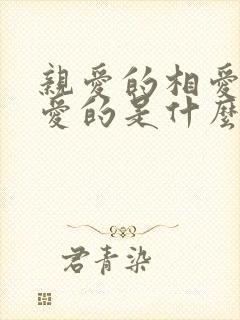 親愛的相愛
愛的是什麼
君青染